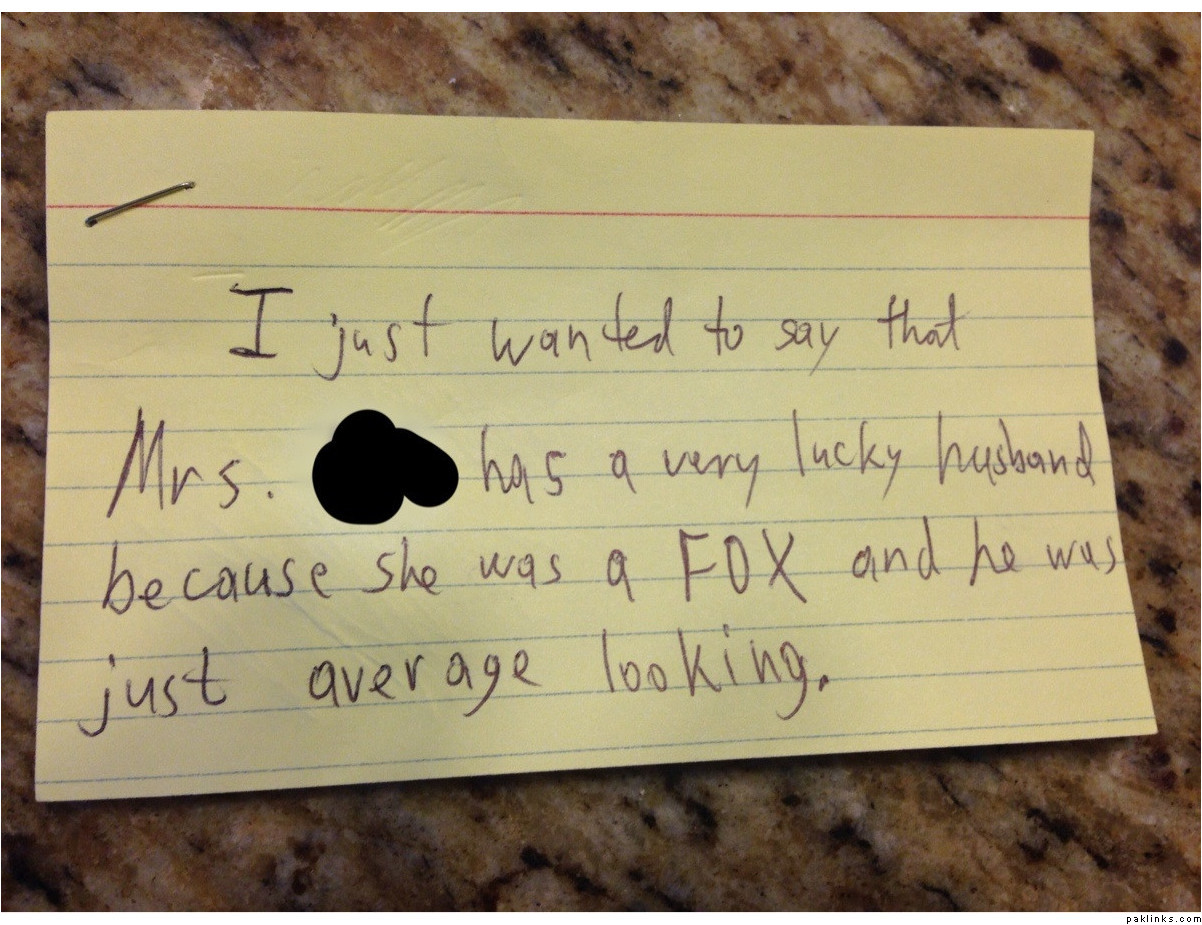 I just wanted to say that
Mrs. has a very lucky husband
because she was a FOX and he was
just average looking.
paklinks.com